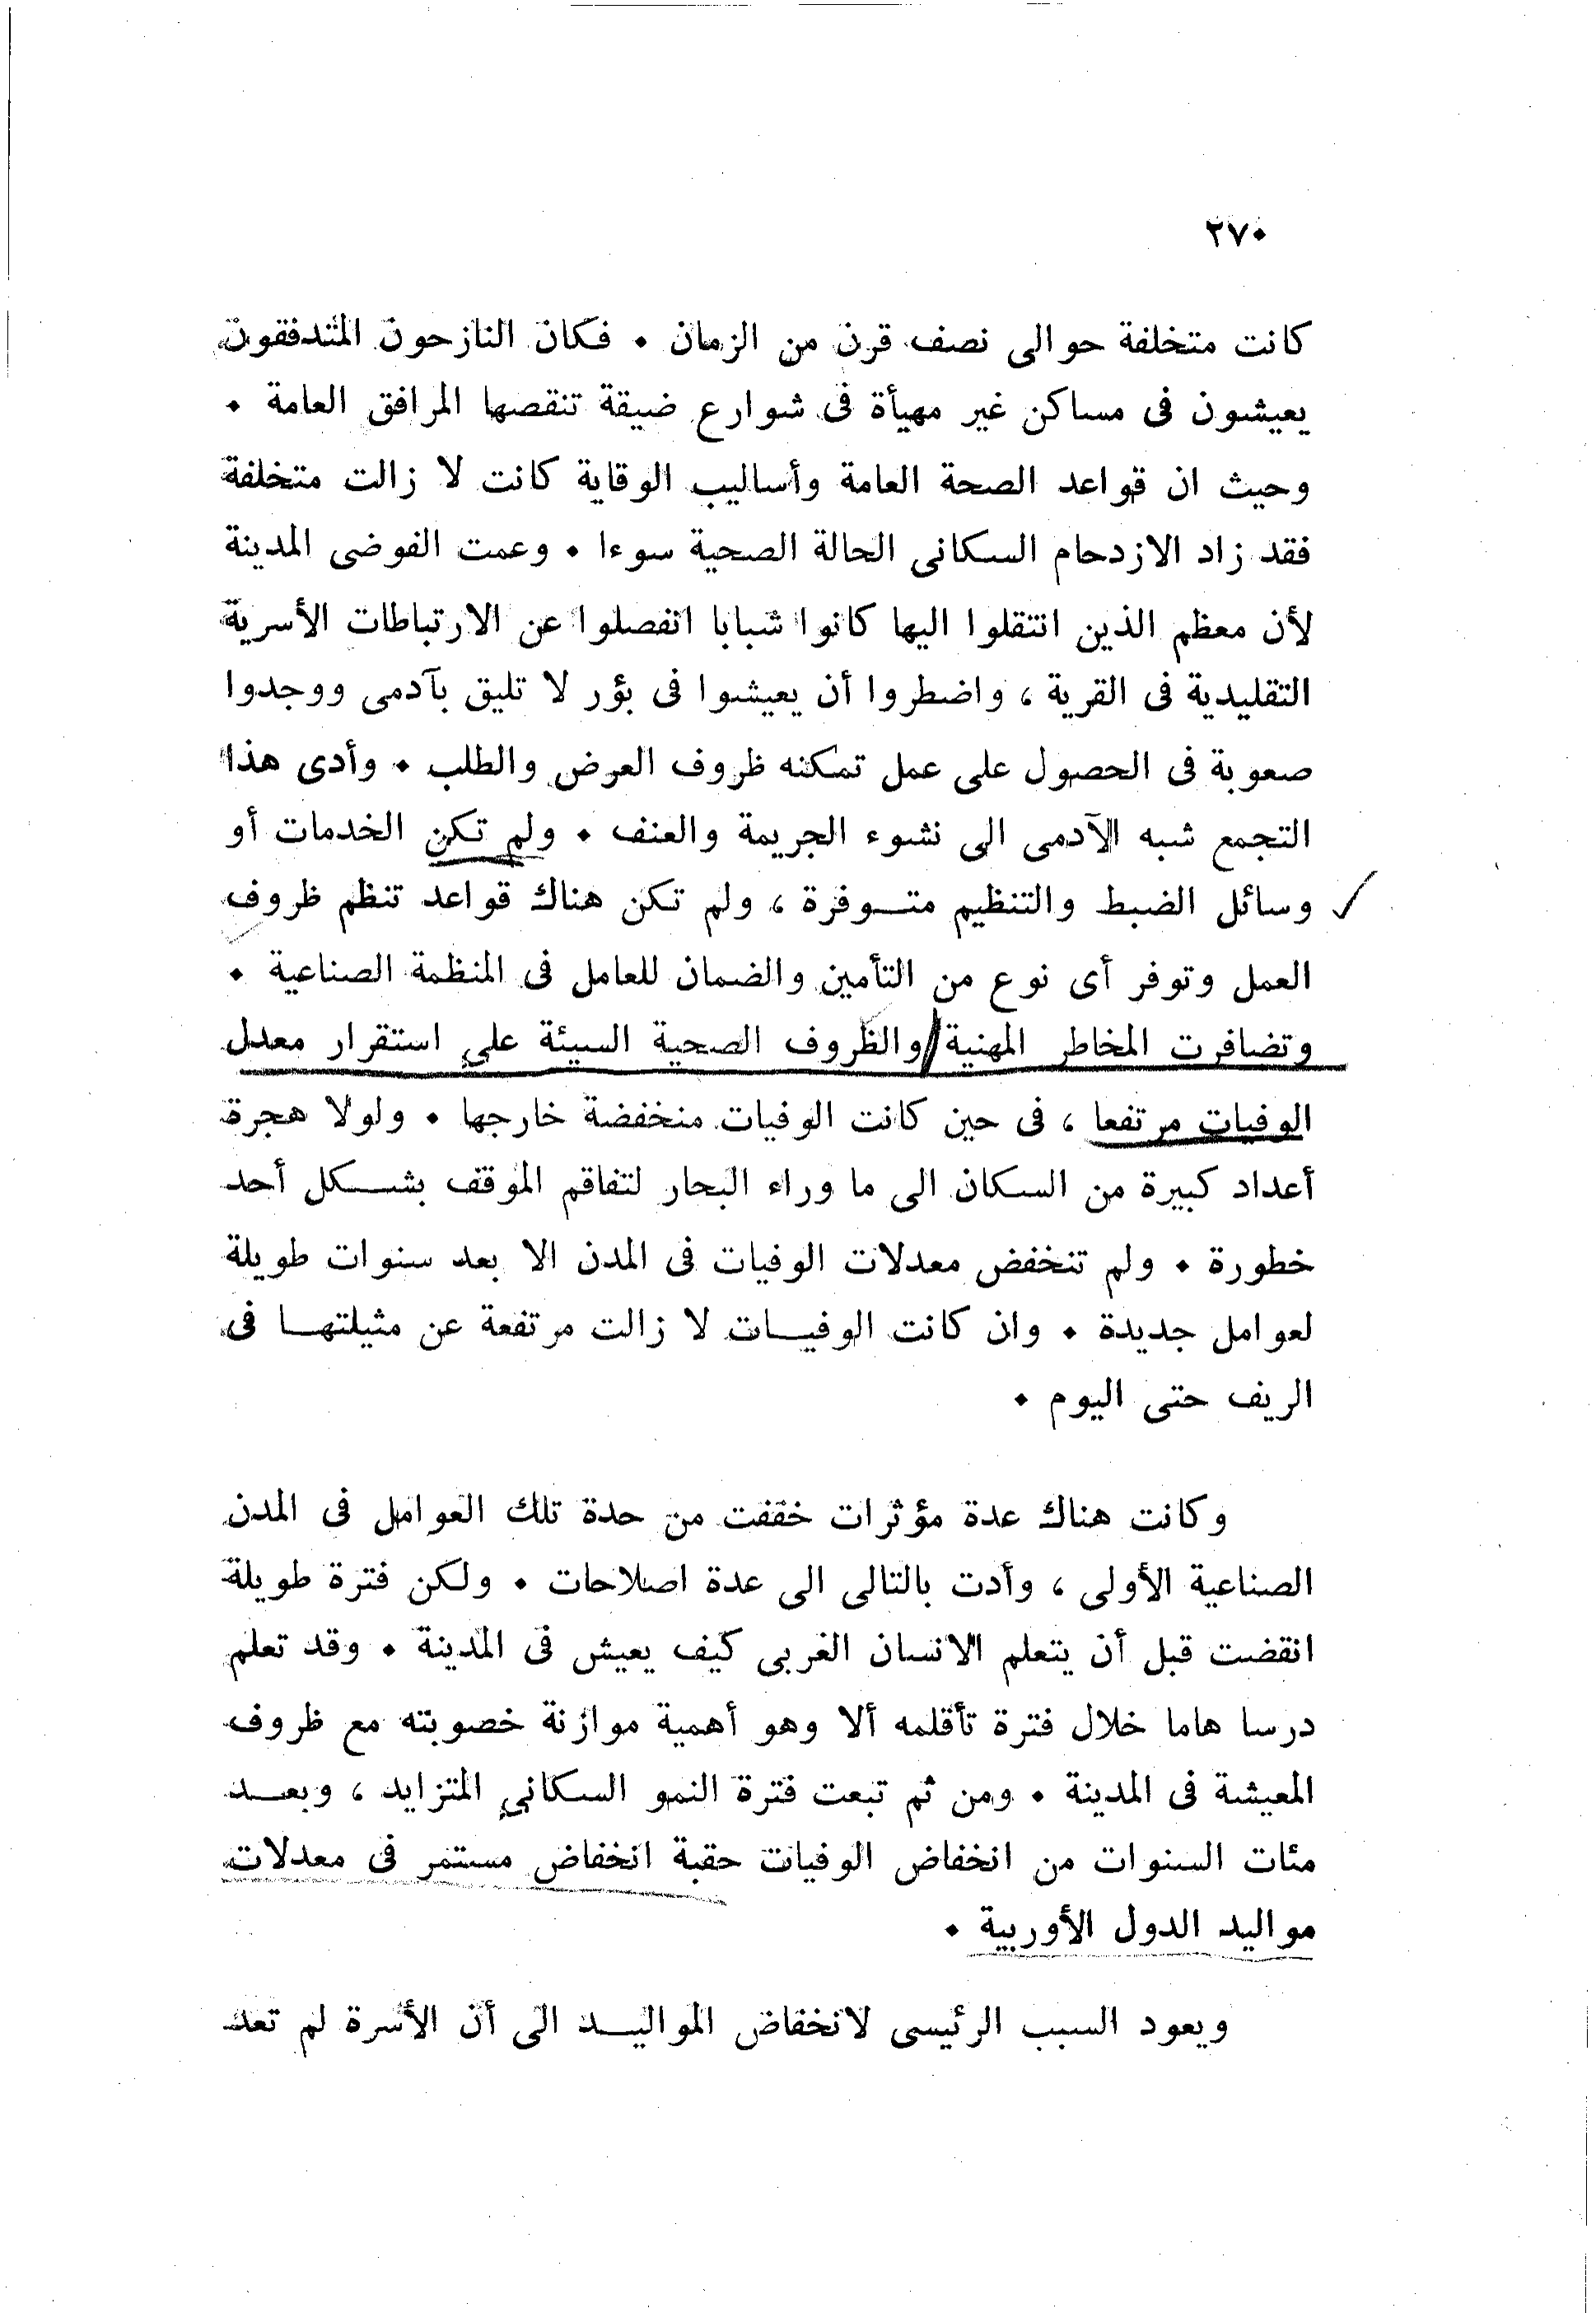 ٢٧٠
كانت متخلفة حوالى نصف قرن من الزمان ٠ فكان النازحون المتدفقون
يعيشون فى مساكن غير مهيأة فى شوارع ضيقة تنقصها المرافق العامة ٠
وحيث ان قواعد الصحة العامة وأساليب الوقاية كانت لا زالت متخلفة
فقد زاد الازدحام السكانى الحالة الصحية سوءا ٠ وعمت الفوضى المدينة
لأن معظم الذين انتقلوا اليها كانوا شبابا انفصلوا عن الارتباطات الأسرية
التقليدية فى القرية ، واضطروا أن يعيشوا فى بؤر لا تليق بآدمى ووجدوا
صعوبة فى الحصول على عمل تمكنه ظروف العرض والطلب ٠ وأدى هذا
التجمع شبه الآدمى الى نشوء الجريمة والعنف ٠ ولم تكن الخدمات أو
وسائل الضبط والتنظيم متـــوفرة ، ولم تكن هناك قواعد تنظم ظروف
العمل وتوفر أى نوع من التأمين والضمان للعامل فى المنظمة الصناعية ٠
وتضافرت المخاطر المهنية والظروف الصحية السيئة على استقرار معدل
الوفيات مرتفعا ، فى حين كانت الوفيات منخفضة خارجها ٠ ولولا هجرة
أعداد كبيرة من السكان الى ما وراء البحار لتفاقم الموقف بشـــكل أحد
خطورة ٠ ولم تنخفض معدلات الوفيات فى المدن الا بعد سنوات طويلة
لعوامل جديدة ٠ وان كانت الوفيـــات لا زالت مرتفعة عن مثيلتهـــا فى
الريف حتى اليوم ٠
وكانت هناك عدة مؤثرات خففت من حدة تلك العوامل فى المدن
الصناعية الأولى ، وأدت بالتالى الى عدة اصلاحات ٠ ولكن فترة طويلة
انقضت قبل أن يتعلم الانسان الغربى كيف يعيش فى المدينة ٠ وقد تعلم
درسا هاما خلال فترة تأقلمه ألا وهو أهمية موازنة خصوبته مع ظروف
المعيشة فى المدينة ٠ ومن ثم تبعت فترة النمو السكاني المتزايد ، وبعـــد
مئات السنوات من انخفاض الوفيات حقبة انخفاض مستمر فى معدلات
مواليد الدول الأوربية ٠
ويعود السبب الرئيسى لانخفاض المواليـــد الى أن الأسرة لم تعد